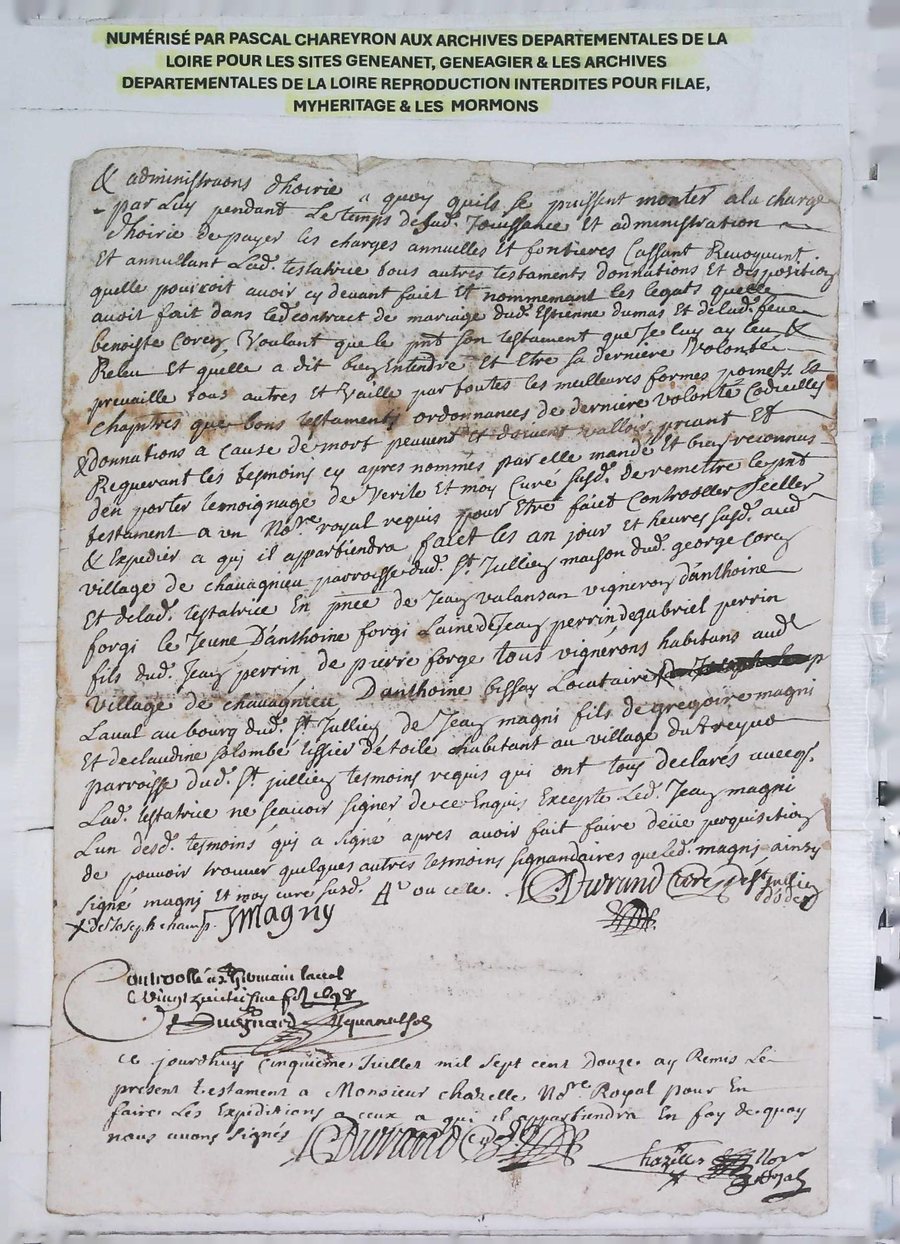 NUMÉRISÉ PAR PASCAL CHAREYRON AUX ARCHIVES DEPARTEMENTALES DE LA
LOIRE POUR LES SITES GENEANET, GENEAGIER & LES ARCHIVES
DEPARTEMENTALES DE LA LOIRE REPRODUCTION INTERDITES POUR FILAE,
MYHERITAGE & LES MORMONS
& administraons d'hoirie a quoy quils se puissent monter a la charge
par luy pendant le temps de sad. Jouissance Et administration
d'hoirie de payer les charges annuelles Et foncieres Cassant Revoquant
Et annullant Lad. testatrice tous autres testaments donnations Et dispositions
quelle pourroit avoir cy devant faict Et nommemant les legats quelle
avoit fait dans led contract de mariage dud. Estienne dumas Et delad. feue
benoiste Corey Voulant que le pnt son testament que Je luy ay leu &
Releu Et quelle a dit bien Entendre Et Etre sa derniere Volonté
prevaille tous autres Et Vaille par toutes les meilleures formes poinets Et
chapitres que bons testaments ordonnances de derniere volonté Codicilles
& donnations a cause de mort peuvent Et doivent valloir priant Et
Requerant les tesmoins cy apres nommés par elle mandé Et bien reconnus
den porter temoignage de verite Et moy Curé susd. De remettre le pnt
testament a un No.re royal requis pour Etre faict Controoller sceller
& Expedier a qui il appartiendra faict les an jour et heures susd. aud
village de chavagnieu parroisse dud. St. Jullien maison dud. george Corey
Et delad. testatrice En pnce de Jean valansan vigneron d'anthoine
forgi le Jeune D'anthoine forgi Laine de Jean perrin de gabriel perrin
fils dud. Jean perrin de pierre forge tous vignerons habitans aud.
village de chavagnieu D'anthoine bissay Locataire
Laval au bourg dud. St. Jullien de Jean magni fils de gregoire magni
Et de claudine Colombe tissier d'étoile habitant au village
parroisse dud. St jullien tesmoins requis qui ont tous declarés avecq.
Lad. testatrice ne scavoir signer de ce Enquis Excepte Led. Jean magni
Lun desd. tesmoins qui a signé apres avoir fait faire deüe perquisition
de pouvoir trouver quelques autres tesmoins signandaires que led. magni ainsy
signé magni Et moy curé susd.
Durand Curé de St Jullien
d'oder
X de Joseph champ.
J Magny
Controollé a St Germain laval
Duesnard
Ce jourdhuy Cinquieme Juillet mil sept cent Douze ay Remis Le
present testament a Monsieur chazelle No.re Royal pour En
faire Les Expeditions a ceux a qui il appartiendra En foy de quoy
nous avons signés
Durand Curé
Chazelle
Royal